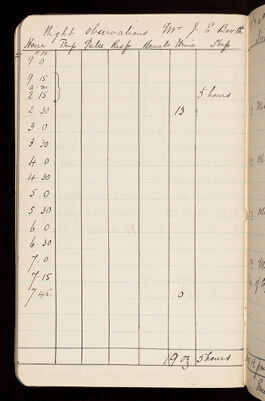 Night Observations Mr J. E. Booth
Hour Temp Pulse Resp Bowels Urine Sleep
9 0
9 15
a.m
2 15 5 hours
2 30 13
3 0
3 30
4 0
4 30
5 0
5 30
6 0
6 30
7 0
7 15
7 45
19 oz 5 hours